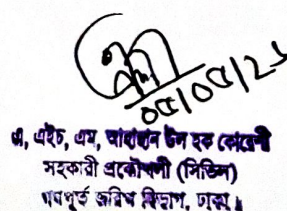 ০৫/০৫/২১
এ, এইচ, এম, জাহাঙ্গীর উল হক কোরেশী
সহকারী প্রকৌশলী (সিভিল)
গণপূর্ত জরিপ বিভাগ, ঢাকা।